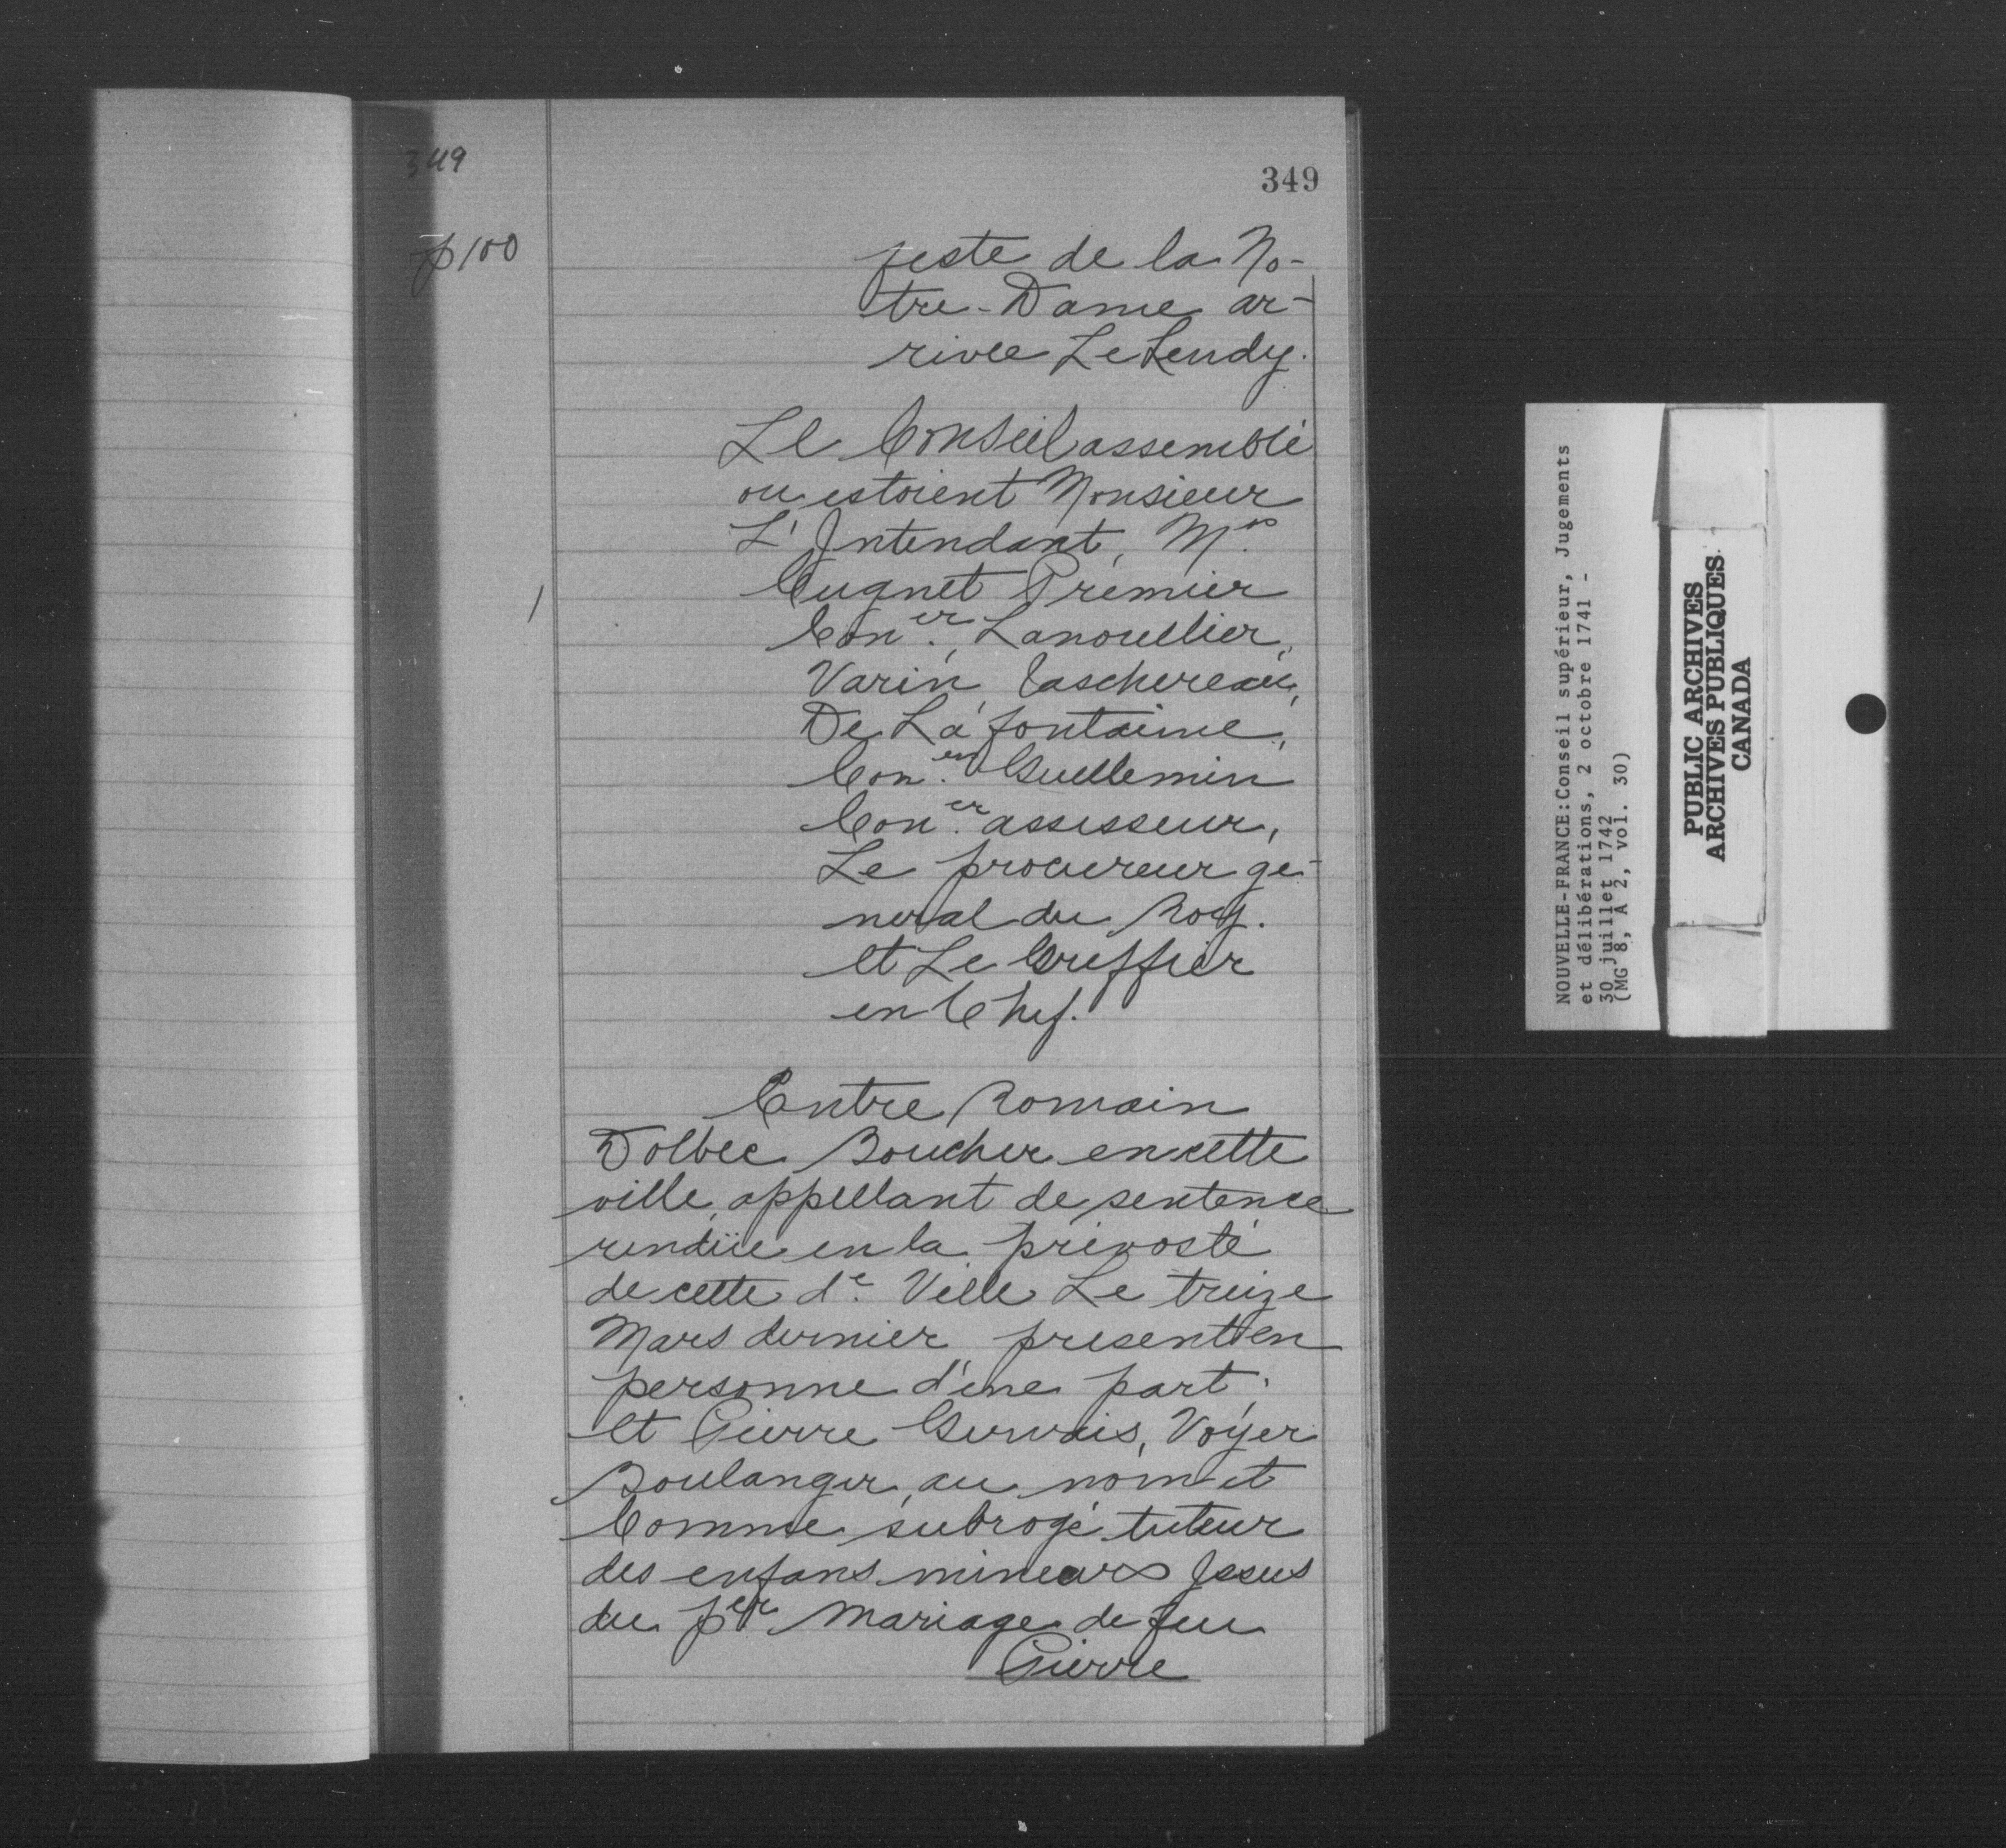 349
349
p 100
feste de la No-
tre-Dame ar-
rivée Le Lundy.
Le Conseil assemblé
ou estoient Monsieur
L'Intendant, Mrs.
Cugnet Premier
Coner., Lanoullier,
Varin, Taschereau,
De Lafontaine,
Coners Guillemin
Coner. assesseur,
Le procureur ge-
neral du Roy.
et Le Greffier
en Chef.
Entre Romain
Dolbec Boucher en cette
ville, appellant de sentence
rendüe en la prévosté
de cette de. Ville Le treize
Mars dernier present en
personne d'une part;
Et Pierre Gervais, Voyer
Boulanger, au nom et
Comme subrogé tuteur
des enfans mineurs Issus
du per mariage de feu
Pierre
NOUVELLE-FRANCE:Conseil supérieur, Jugements
et délibérations, 2 octobre 1741 -
30 juillet 1742
(MG 8, A 2, vol. 30)
PUBLIC ARCHIVES
ARCHIVES PUBLIQUES
CANADA